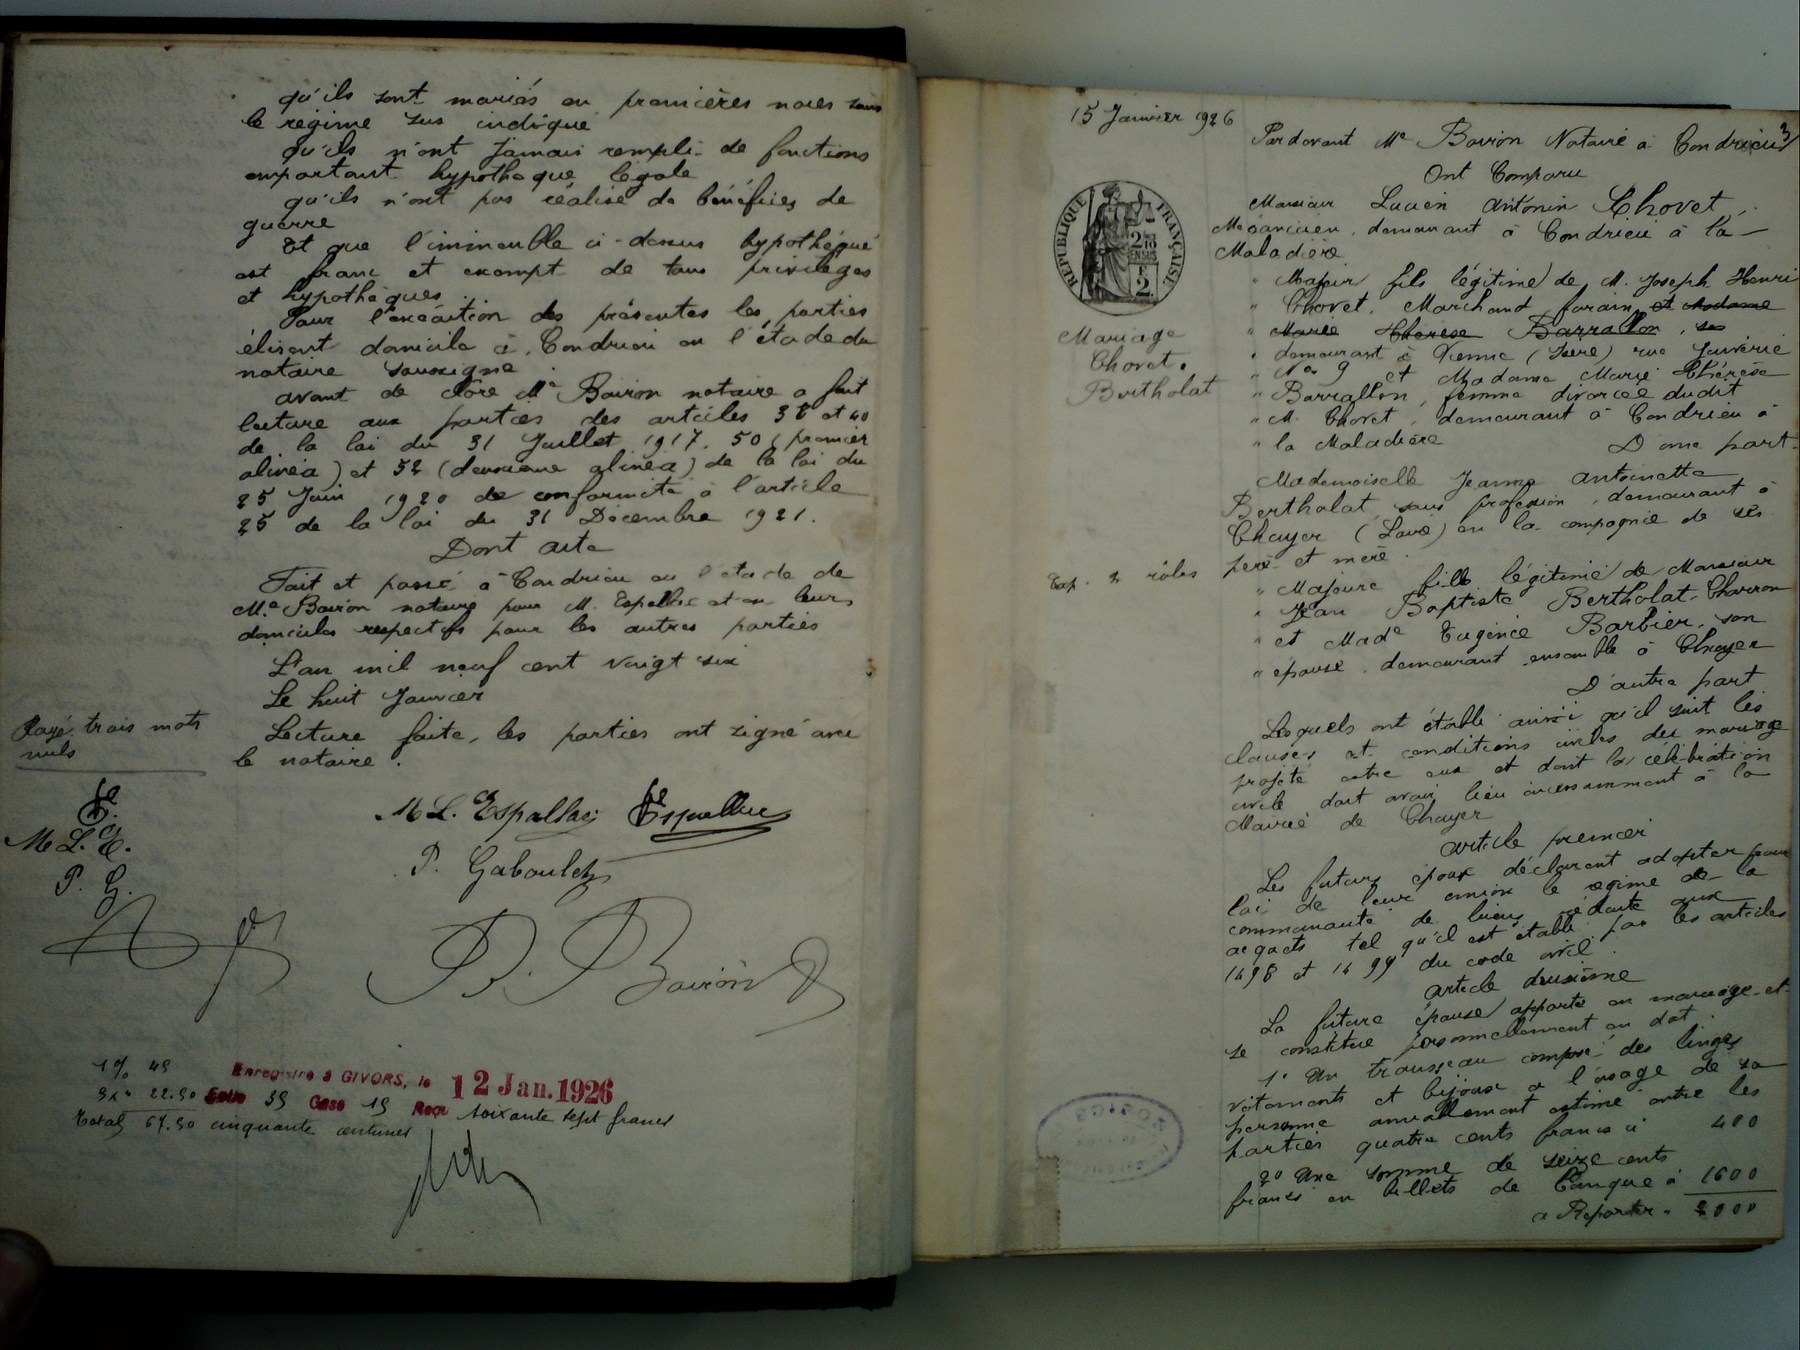 qu'ils sont mariés en premières noces sous
le regime sus indiqué
Qu'ils n'ont jamais rempli de fonctions
emportant hypotheque légale
qu'ils n'ont pas réalisé de bénéfices de
guerre
Et que l'immeuble ci-dessus hypothéqué
est franc et exempt de tous privilèges
et hypothèques
Pour l'execution des présentes les parties
élisent domicile à Condrieu en l'étude du
notaire soussigné
avant de clore Me Boiron notaire a fait
lecture aux parties des articles 38 et 40
de la loi du 31 Juillet 1917. 50 (premier
alinéa) et 52 (deuxième alinéa) de la loi du
25 Juin 1920 de conformité à l'article
25 de la loi du 31 Décembre 1921.
Dont acte
Fait et passé à Condrieu en l'étude de
Me Boiron notaire pour M. Espellac et en leurs
domiciles respectifs pour les autres parties
L'an mil neuf cent vingt six
Le huit Janvier
Lecture faite, les parties ont signé avec
le notaire.
Rayé trois mots
nuls
M L. E.
P. G.
M L. Espallac
P. Gaboulet
Boiron
1% 45
22.50
Total 67.50
Enregistré à GIVORS, le 12 Jan. 1926
Folio 39 Case 19 Reçu soixante sept francs
cinquante centimes
15 Janvier 1926
3
RÉPUBLIQUE FRANÇAISE
2/10
EN SUS
2 F
Mariage
Chovet.
Bertholat
Exp. 2 rôles
Pardevant Me Boiron Notaire à Condrieu
Ont Comparu
Monsieur Lucien Antonin Chovet,
Mécanicien, demeurant à Condrieu à la
Maladière
" Majeur fils légitime de M. Joseph Henri
" Chovet, Marchand forain, et Madame
" Marie Thérèse Barrallon, ses
" demeurant à Vienne (Isère) rue Juiverie
" No 9 et Madame Marie Thérèse
" Barrallon, femme divorcée dudit
" M. Chovet, demeurant à Condrieu à
" la Maladière
D'une part.
Mademoiselle Jeanne Antoinette
Bertholat, sans profession, demeurant à
Chuyer (Loire) en la compagnie de ses
père et mère.
" Majeure fille légitime de Monsieur
" Jean Baptiste Bertholat, Charron
" et Made Eugénie Barbier, son
" épouse, demeurant ensemble à Chuyer
D'autre part
Lesquels ont établi ainsi qu'il suit les
clauses et conditions civiles du mariage
projeté entre eux et dont la célébration
civile doit avoir lieu incessamment à la
Mairie de Chuyer
Article premier
Les futurs époux déclarent adopter pour
loi de leur union le régime de la
communauté de biens réduite aux
acquets tel qu'il est établi par les articles
1498 et 1499 du code civil.
Article deuxième
La future épouse apporte en mariage et
se constitue personnellement en dot.
1° Un trousseau composé des linges
vêtements et bijoux à l'usage de sa
personne amiablement estimé entre les
parties quatre cents francs ci 400
2° Une somme de seize cents
francs en billets de banque ci 1600
à Reporter. 2000